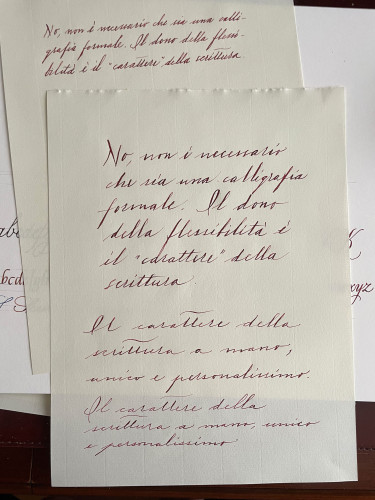 No, non è necessario che sia una calli-
grafia formale. Il dono della flessi-
bilità è il "carattere" della scrittura.
No, non è necessario
che sia una calligrafia
formale. Il dono
della flessibilità è
il "carattere" della
scrittura
Il carattere della
scrittura a mano,
unico e personalissimo.
Il carattere della
scrittura a mano, unico
e personalissimo
abcd
xyz